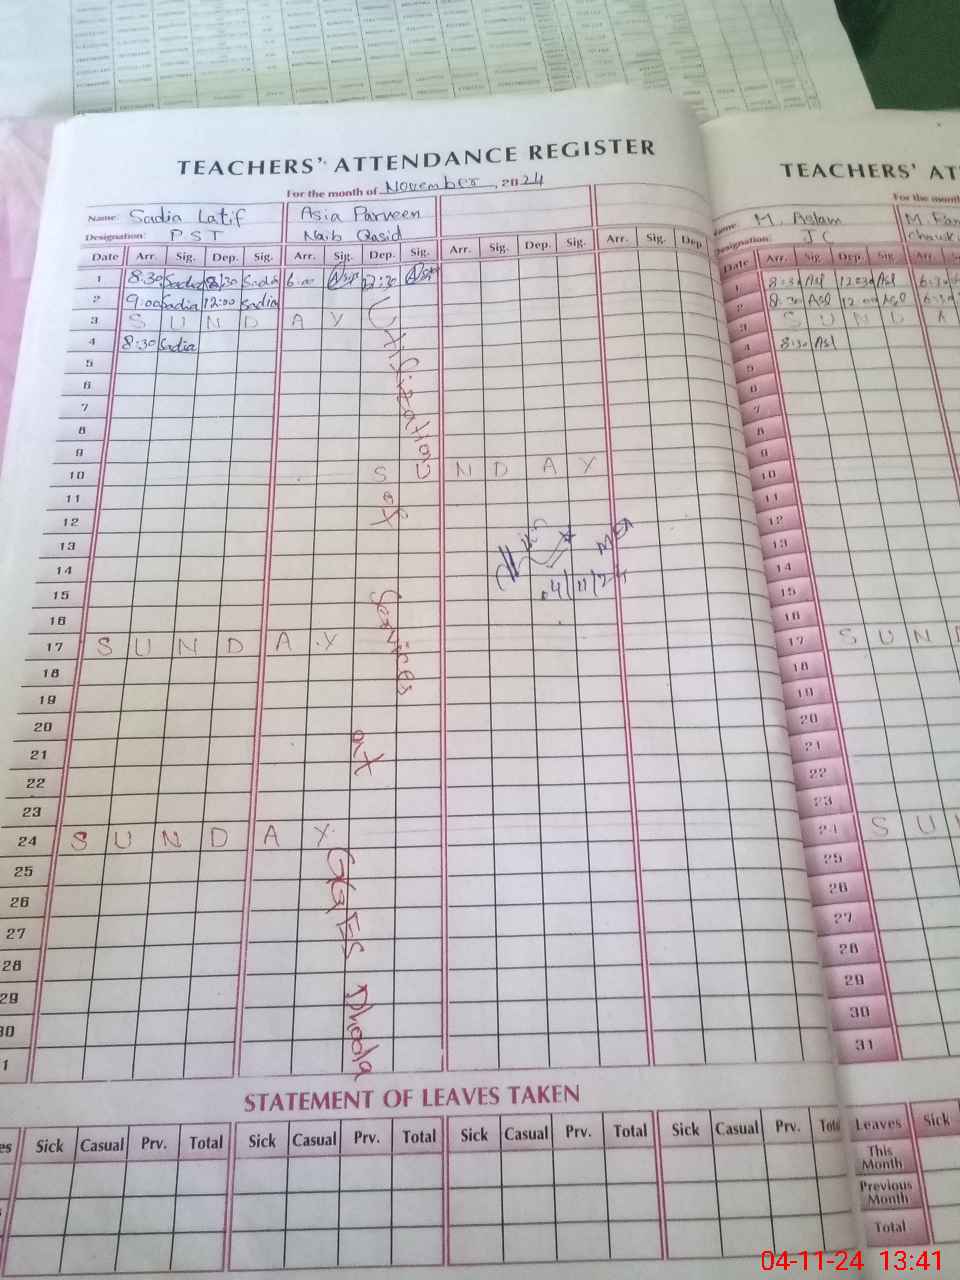 TEACHERS' ATTENDANCE REGISTER
For the month of November, 2024
Name: Sadia Latif Asia Parveen
Designation: PST Naib Qasid
Date Arr. Sig. Dep. Sig. Arr. Sig. Dep. Sig. Arr. Sig. Dep. Sig. Arr. Sig. Dep
1 8:30 Sadia 30 Sadia 6:00 12:30
2 9:00 Sadia 12:00 Sadia
3 SUNDAY
4 8:30 Sadia
5
6
7
8
9
10 SUNDAY
11
12
13
14
15
16
17 SUNDAY
18
19
20
21
22
23
24 SUNDAY
25
26
27
28
29
30
1
Utilization of Services at GGES Dhoda
04/11/24
STATEMENT OF LEAVES TAKEN
es Sick Casual Prv. Total Sick Casual Prv. Total Sick Casual Prv. Total Sick Casual Prv. Total
TEACHERS' AT
For the month
Name: M. Aslam M.
Designation: JC Chawk
Date Arr. Sig. Dep. Sig. Arr. S
1 8:30 Asl 12:30 Asl 6:30
2 8:30 Asl 12:00 Asl 6:30
3 SUND A
4 8:30 Asl
5
6
7
8
9
10
11
12
13
14
15
16
17 SUND
18
19
20
21
22
23
24 SU
25
26
27
28
29
30
31
Leaves Sick
This Month
Previous Month
Total
04-11-24 13:41